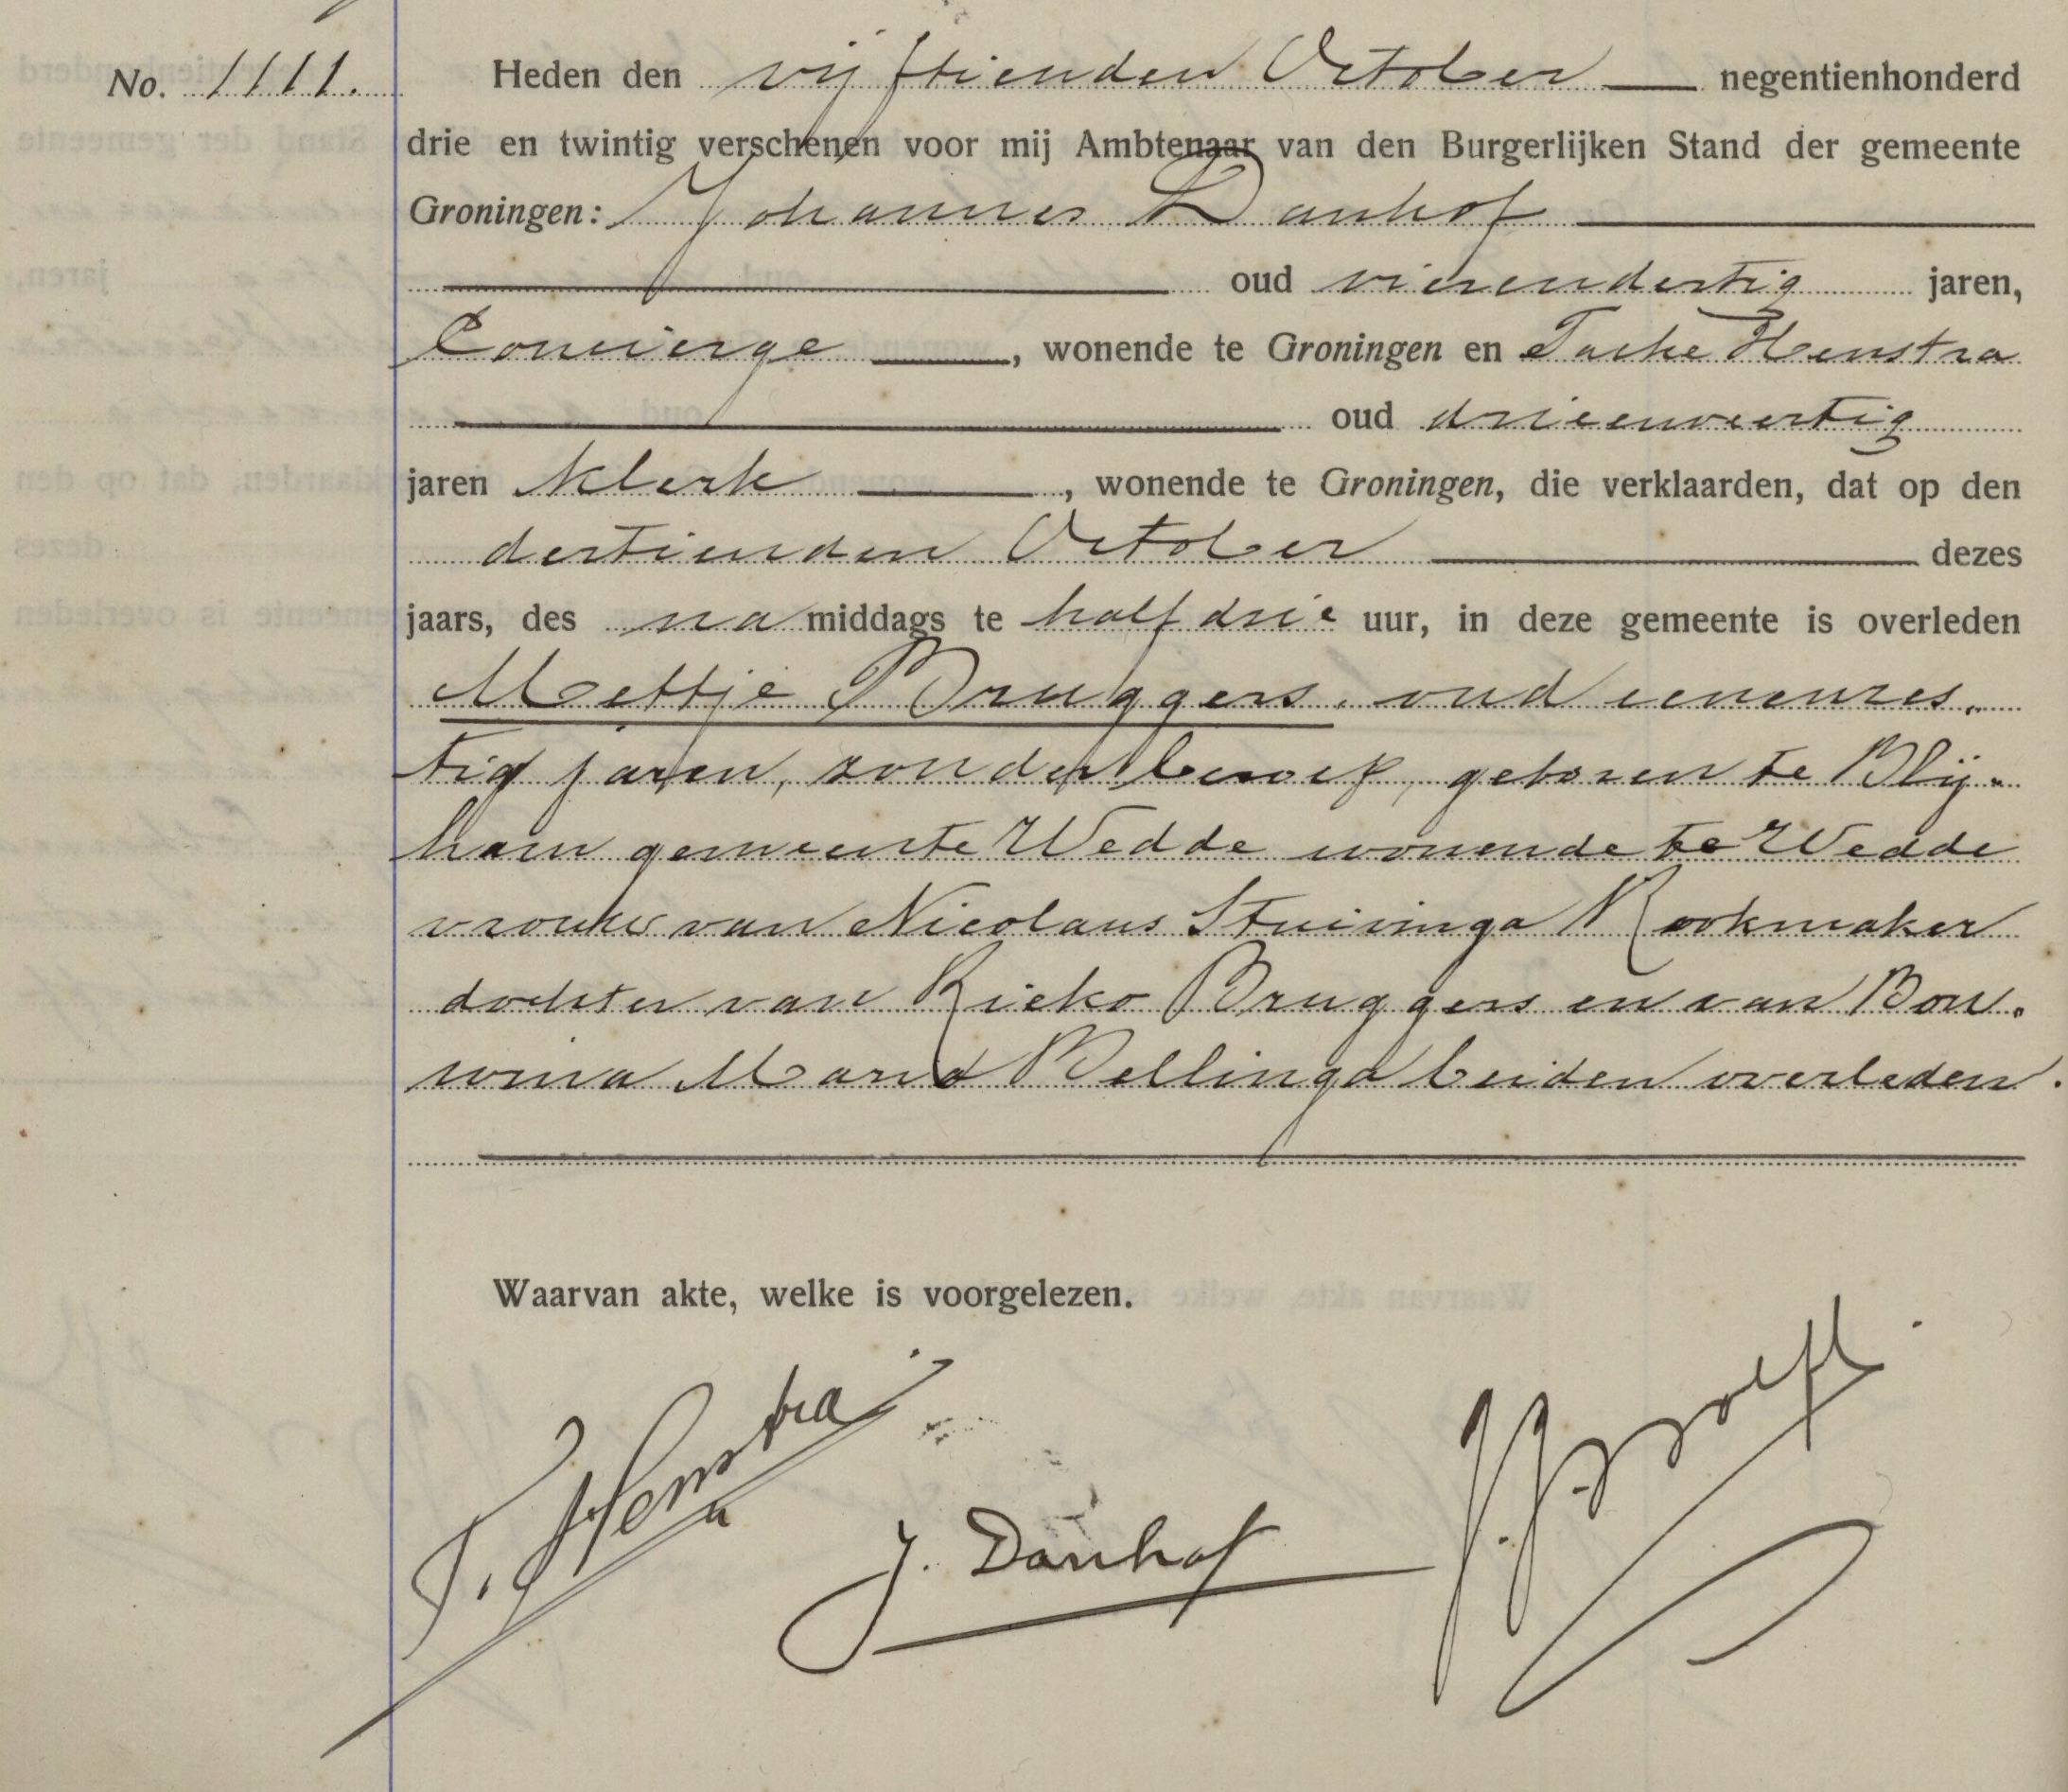 No. 1111.
Heden den vijftienden October negentienhonderd
drie en twintig verschenen voor mij Ambtenaar van den Burgerlijken Stand der gemeente
Groningen: Johannes Danhof
oud vierendertig jaren,
Concierge, wonende te Groningen en Tacke Henstra
oud drieenveertig
jaren klerk, wonende te Groningen, die verklaarden, dat op den
dertienden October dezes
jaars, des namiddags te half drie uur, in deze gemeente is overleden
Mettje Bruggers, oud eenenzes-
tig jaren, zonder beroep, geboren te Blij-
ham gemeente Wedde wonende te Wedde
vrouw van Nicolaus Stuivinga Rookmaker
dochter van Rieko Bruggers en van Bou-
wina Maria Bellinga beiden overleden.
Waarvan akte, welke is voorgelezen.
T. Henstra
J. Danhof